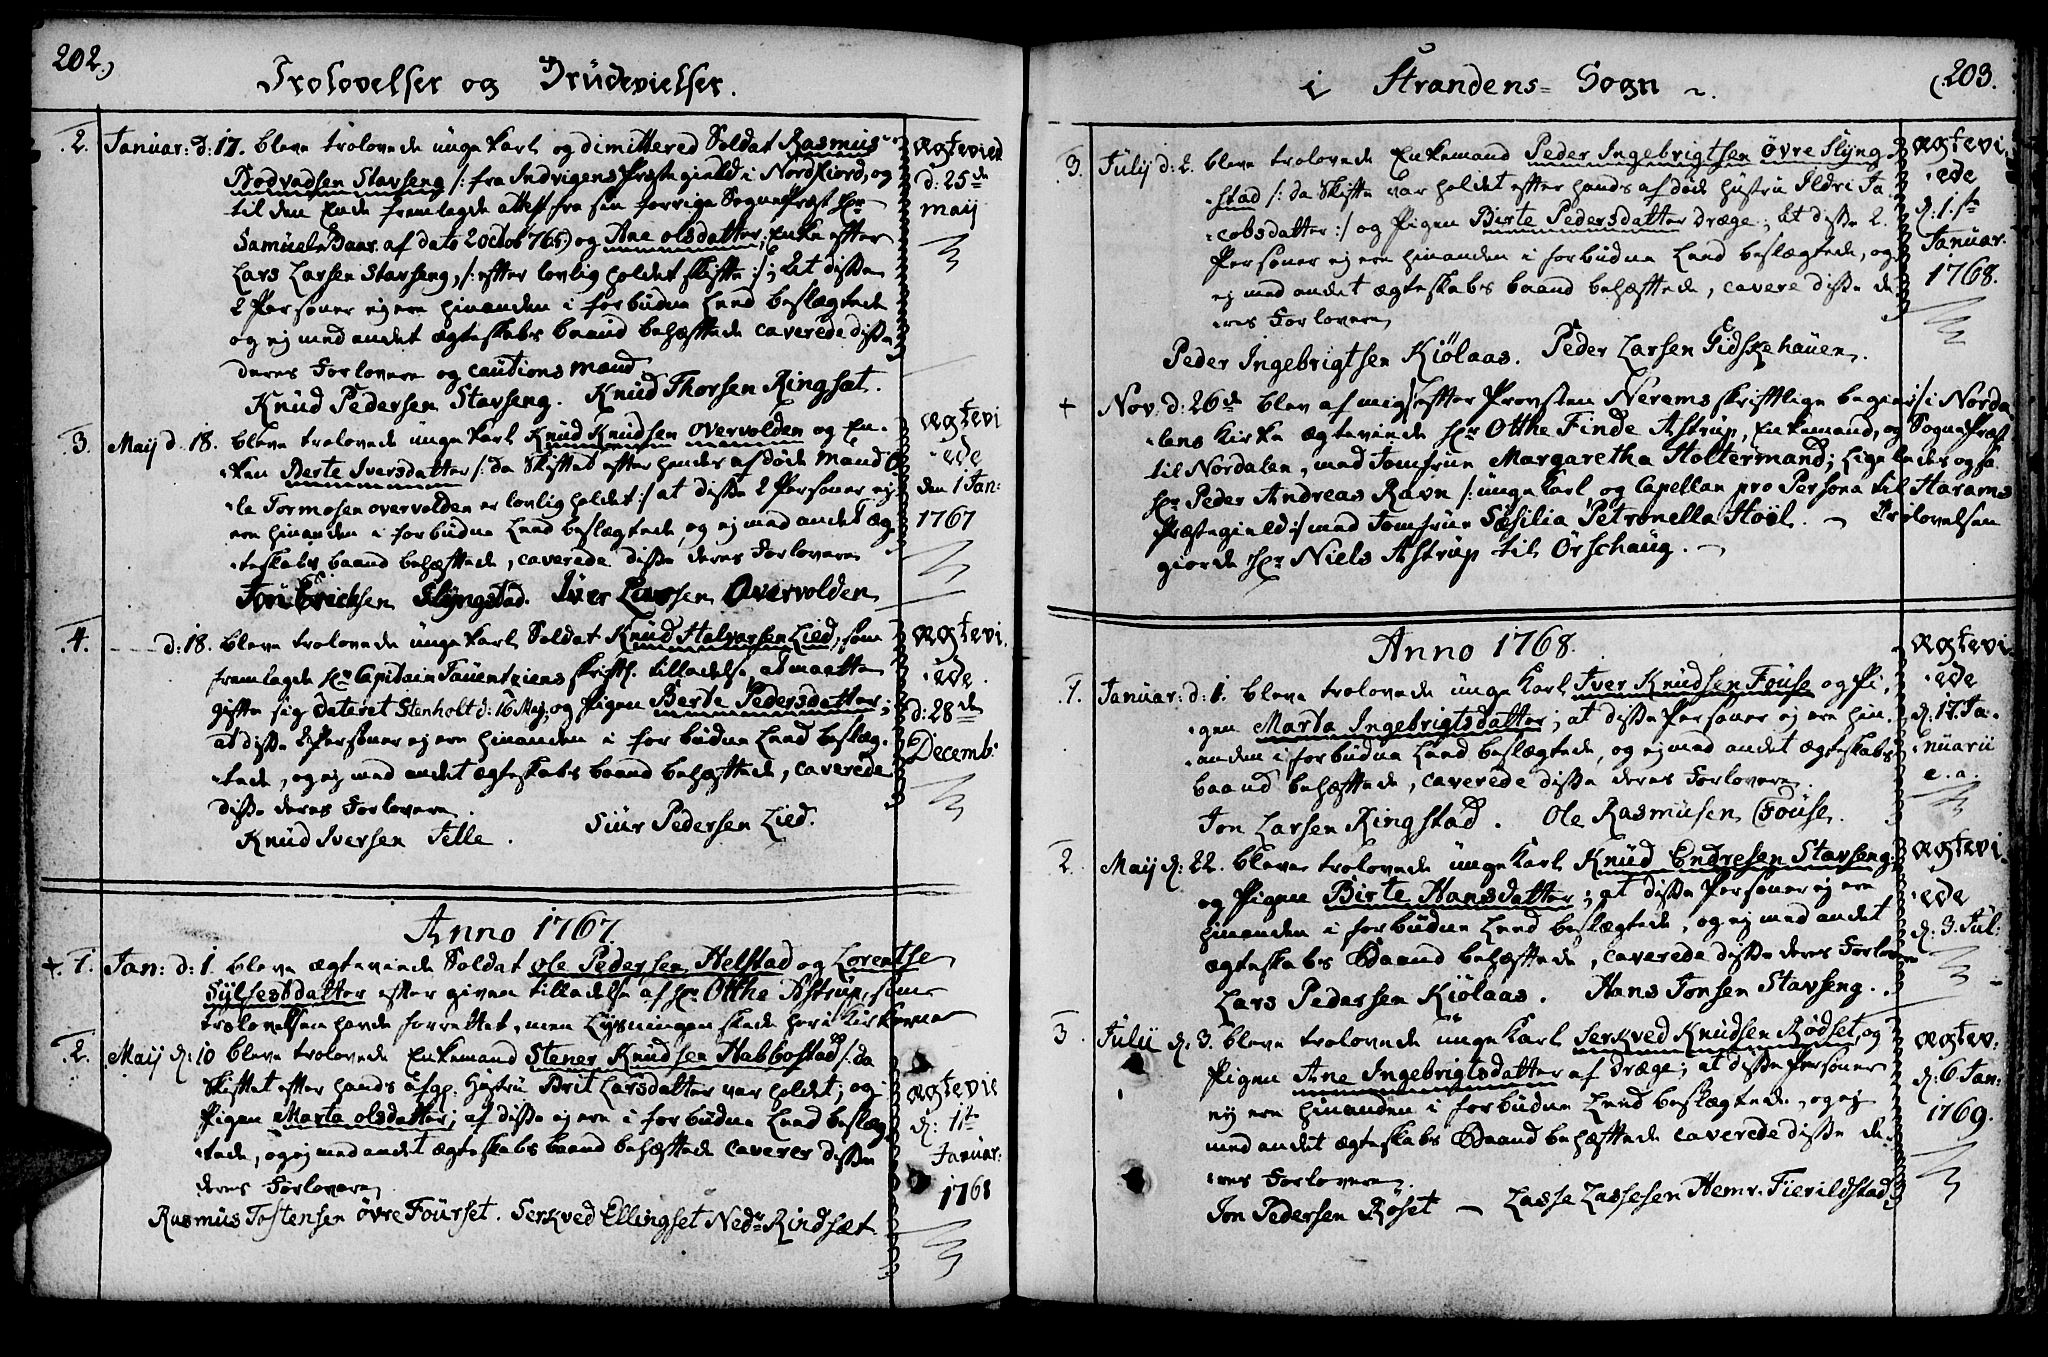 202.)
Trolovelser og Brudevielser.
2. Januar: d: 17. bleve trolovede unge karl og dimittered Soldat Rasmus
Bodvadsen Stavseng /: fra Indvigens Præstegield i Nordfiord, og
til den Ende fremlagde attest fra sin forrige SognePræst Hr
Samuel Baar af dato 2 octob 765) og Ane olsdatter, Enke efter
Lars Larsen Stavseng, /: efter lovlig holdet skifte :/; at disse
2 Personer ej ere hinanden i forbudne Leed beslægtede
og ej med andet ægteskabs baand behæftede caverede disse
deres Forlovere og cautions mænd
Knud Pedersen Stavseng. Knud Thorsen Ringsæt.
ægtevied
d: 25de
maij
3. Maij d. 18. bleve trolovede unge karl Knud Knudsen overvolden og En-
-ken Berte Iversdatter /: da Skiftet efter hendes afdøde Mand O
-le Tormosen overvolden er lovlig holdet :/ at disse 2 Personer ej
ere hinanden i forbudne Leed beslægtede, og ej med andet æg-
-teskabs baand behæftede, caverede disse deres Forlovere
Jon Erichsen Slyngstad. Iver Larsen Overvolden
ægtevi
-ede
den 1 Jan:
1767
.4. d: 18. bleve trolovede unge karl Soldat Knud Halvorsen Lied, som
fremlagde Hr Capitain Tauentziens skriftl. tilladelse at maatte
gifte sig dateret Stenholt d: 16 Maj, og Pigen Berte Pedersdatter;
at disse 2 Personer ej ere hinanden i forbudne Leed beslæg-
-tede, og ej med andet ægteskabs baand behæftede, caverede
disse deres Forlovere
Knud Iversen Telle. Siur Pedersen Lied.
ægtevi.
-ede.
d: 28de
Decemb:
Anno 1767.
+. 1. Jan: d: 1. bleve ægteviede Soldat ole Pedersen Helstad og Lorentse
Sylfestdatter efter given tilladelse af Hr. Otthe Astrup, som
trolovelsen havde forrettet, men Lysningen skede her i Kirkerne
.2. Maij d: 10 bleve trolovede Enkemand Stener Knudsen Habbostad /: da
Skiftet efter hands afgg. Hustru Brit Larsdatter var holdet; og
Pigen Marta olsdatter; at disse ej ere i forbudne Leed beslæg
-tede, og ej med andet ægteskabs baand behæftede caverer disse
deres Forlovere
Rasmus Tostensen øvre Fourset. Serkved Ellingset Nedr Rindsæt
ægtevie
d: 1te
Januar:
1768
i Strandens Sogn
(203.
3. Julij d: 2. bleve trolovede Enkemand Peder Ingebrigtsen øvre Slyng-
-stad /: da Skifte var holdet efter hands afdøde hustru Ildri Ja
-cobsdatter :/ og Pigen Birte Pedersdatter Dræge; at disse 2.
Personer ej ere hinanden i forbudne Leed beslægtede, og
ej med andet ægteskabs baand behæftede, cavere disse de
-res Forlovere
Peder Ingebrigtsen Kiölaas. Peder Larsen Gidskehauen.
ægtevi.
-ede
d: 1.ste
Januar.
1768.
+ Nov: d: 26de blev af mig /: efter Provsten Nerems skriftlige begier :/ i Norda
-lens Kirke ægteviede Hr Otthe Finde Astrup, Enkemand, og SognePræst
til Nordalen, med Jomfrue Margaretha Holtermand; ligeledes og sa.
Hr Peder Andreas Ravn /: unge karl og Capellan pro Persona til Harams
Præstegield :/ med Jomfrue Sæsilia Petronella Höèl. — Trolovelsen
giorde Hr Niels Astrup til Örschaug. —
Anno 1768.
.1. Januar: d: 1. bleve trolovede unge Karl Iver Knudsen Föuse og Pi-
-gen Marta Ingebrigtsdatter; at disse Personer ej ere hin-
-anden i forbudne Leed beslægtede, og ej med andet ægteskabs
baand behæftede, caverede disse deres Forlovere
Jon Larsen Ringstad. Ole Rasmusen Föuse.
ægtevi
-ede
d: 17. Ja-
-nuarii
e. a.
2. Maij d: 22. bleve trolovede unge Karl Knud Endresen Stavseng
og Pigen Birte Hansdatter; at disse Personer ej ere
hinanden i forbudne Leed beslægtede, og ej med andet
ægteskabs Baand behæftede, caverede disse deres Forlovere
Lars Pedersen Kiölaas. Hans Jonsen Stavseng.
ægtevi.
-ede
d: 3. Jul:
3. Julii d: 3. bleve trolovede unge Karl Serkved Knudsen Rødset, og
Pigen Ane Ingebrigtsdatter af Dræge; at disse Personer
ej ere hinanden i forbudne Leed beslægtede, og ej
med andet ægteskabs Baand behæftede caverede disse de-
-res Forlovere.
Jon Pedersen Röset — Lasse Lassesen Hemr. Fierildstad
ægtev:
d: 6. Jan:
1769.